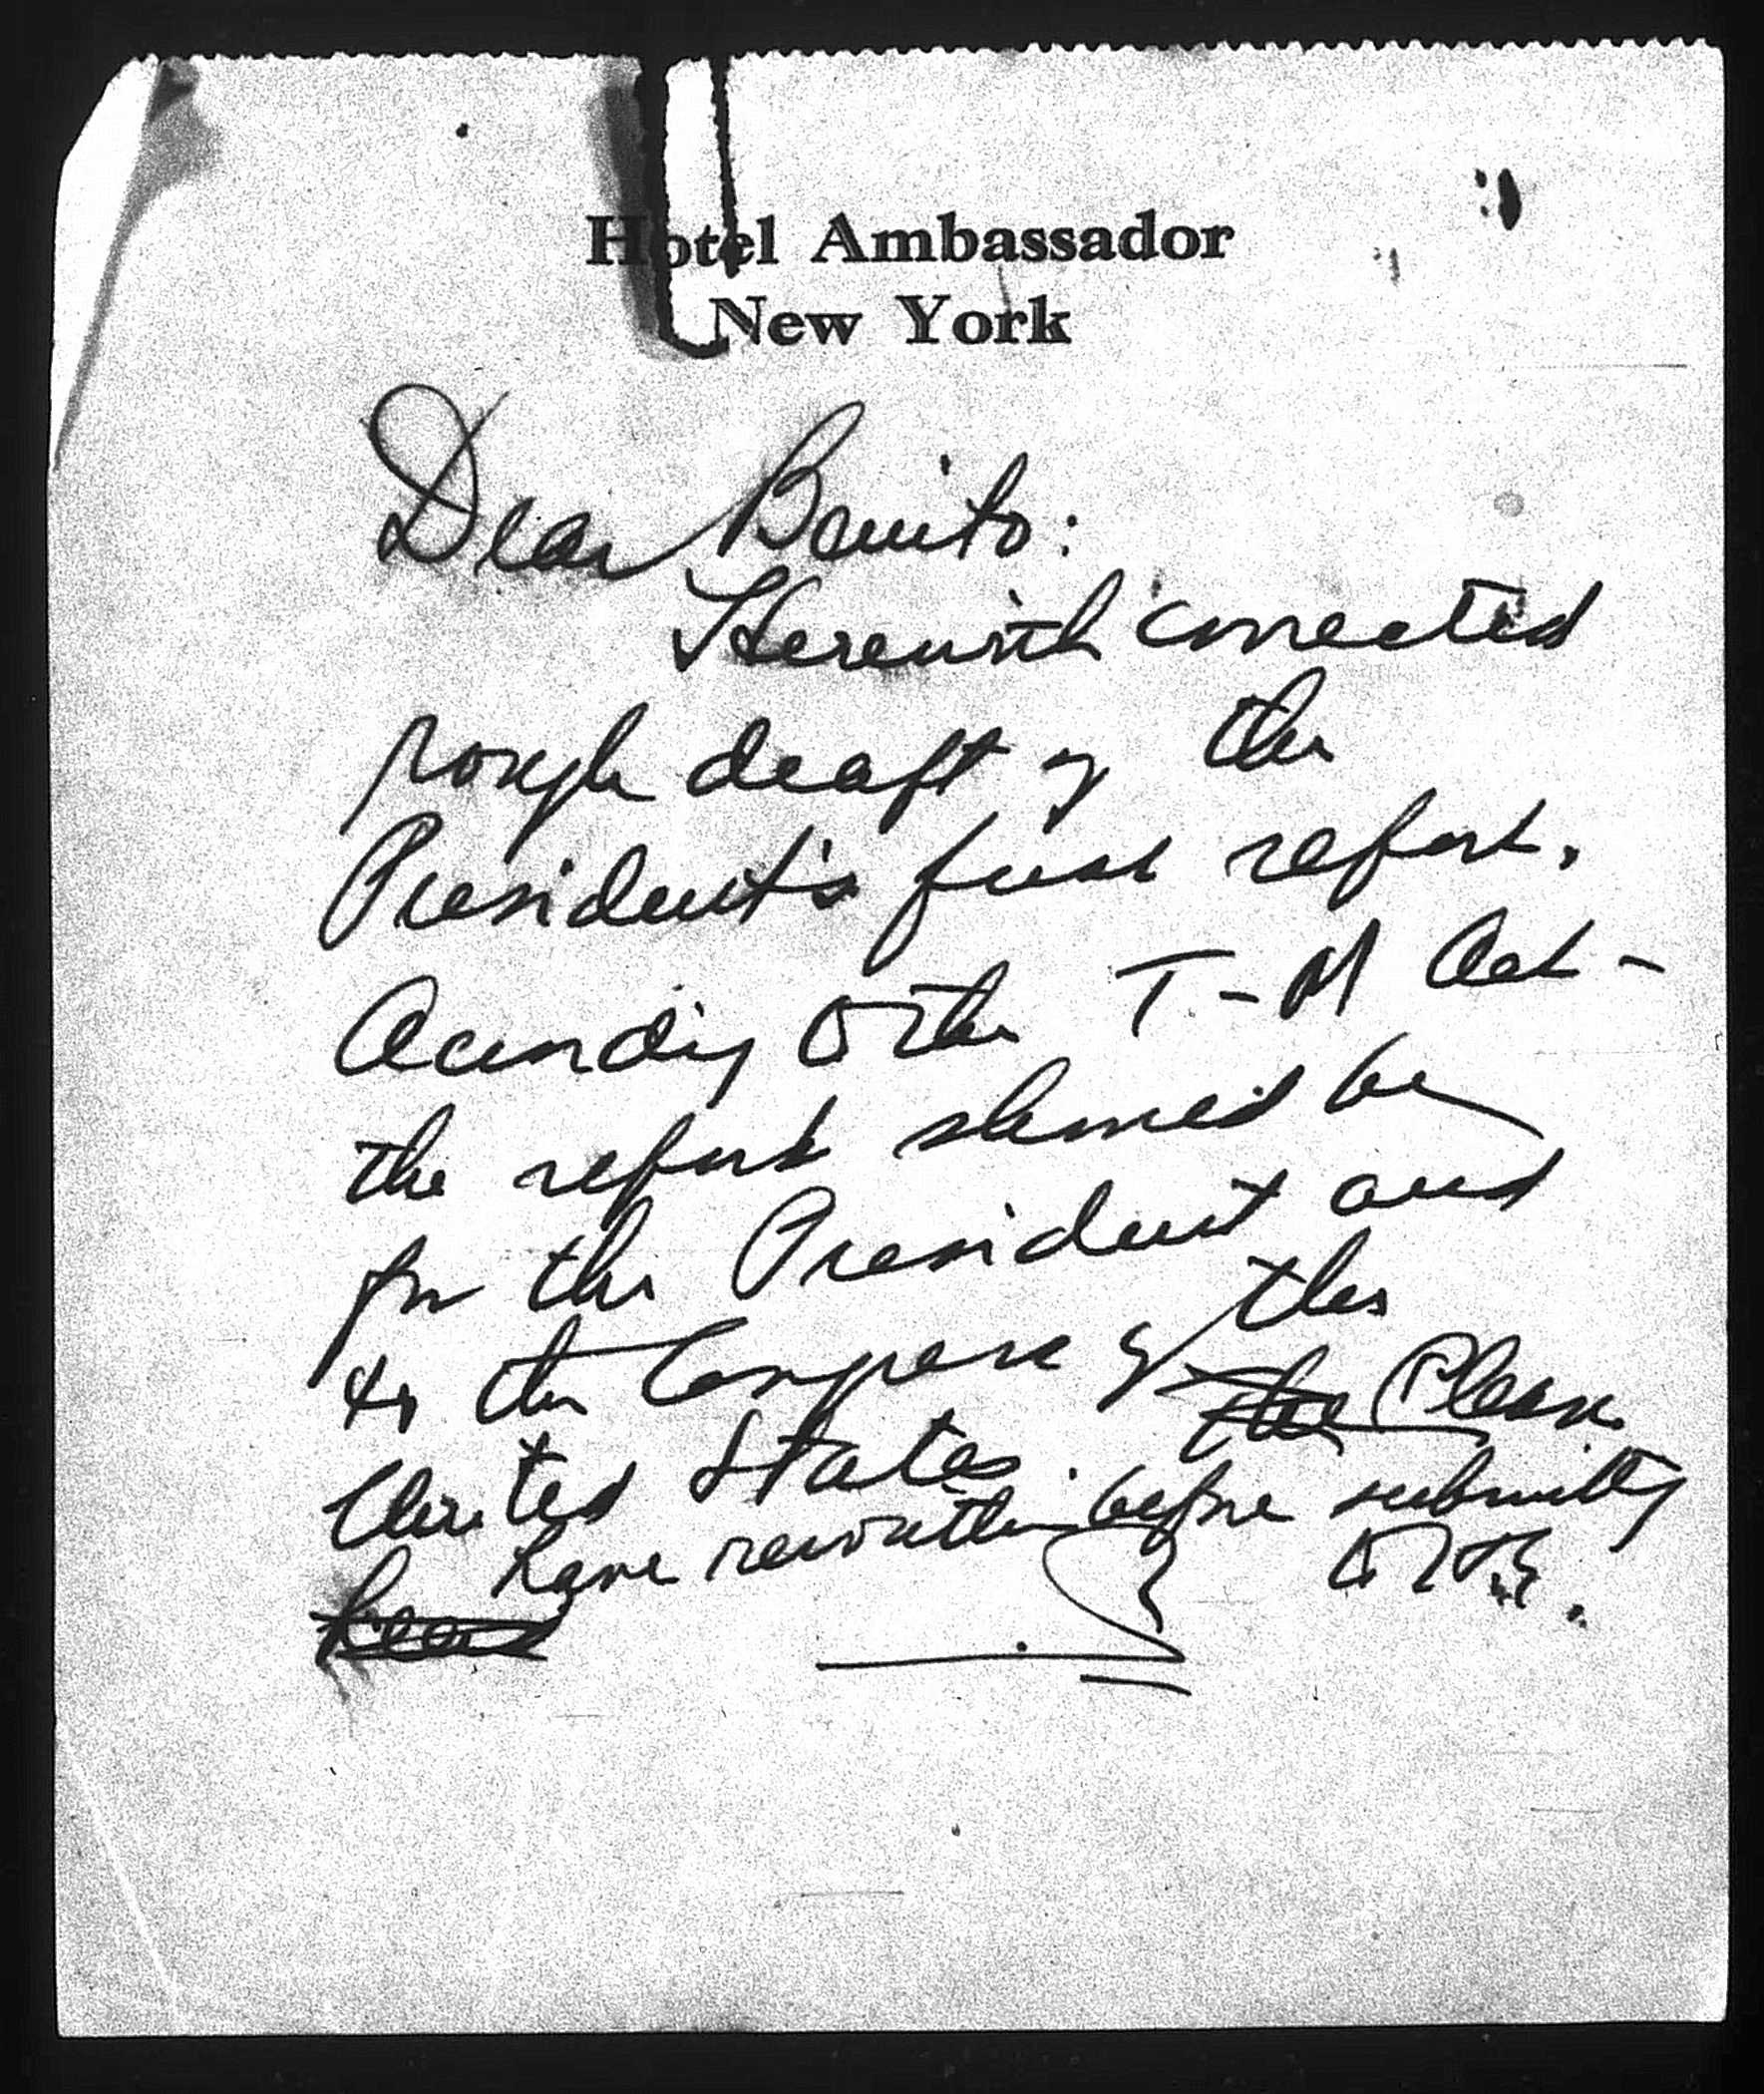 Hotel Ambassador
New York
Dear Benito:
Herewith corrected
rough draft of the
President's first report.
According to the T-M Act -
the report should be
for the President and
to the Congress of the
United States. the Please
have rewritten before submitting
to